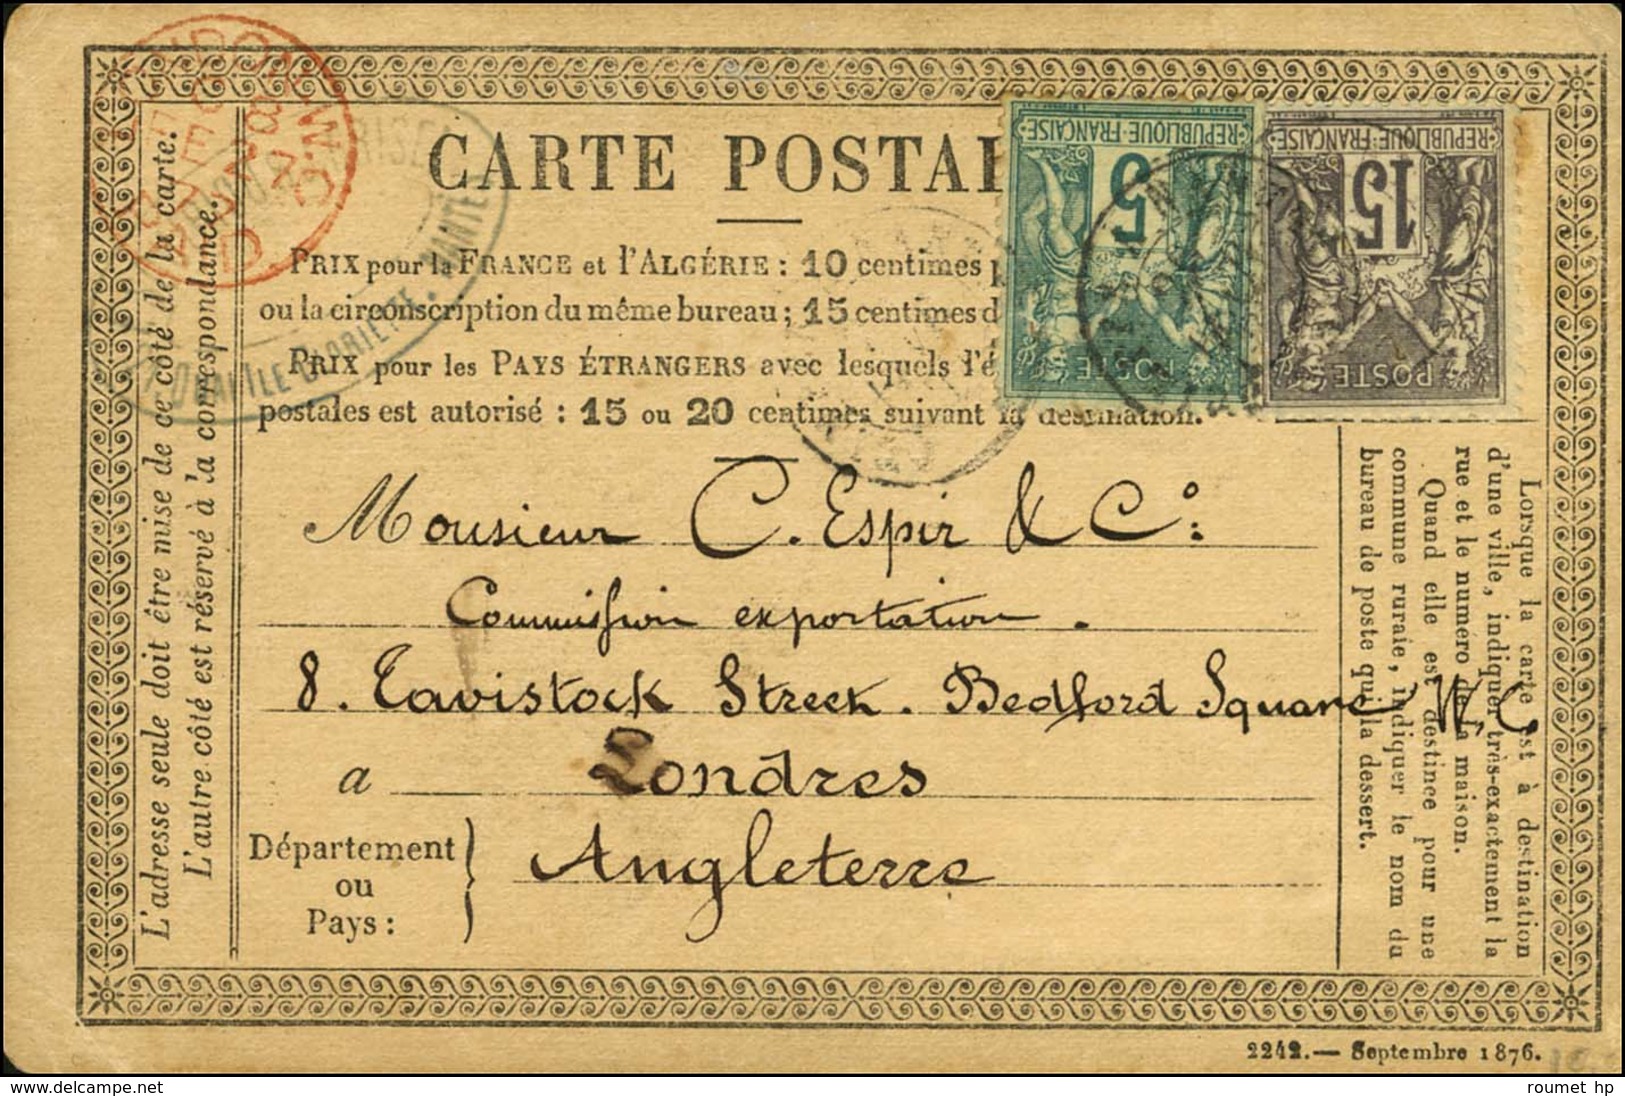 CARTE POSTAL
PRIX pour la FRANCE et l'ALGÉRIE : 10 centimes p
ou la circonscription du même bureau ; 15 centimes d
PRIX pour les PAYS ÉTRANGERS avec lesquels l'é
postales est autorisé : 15 ou 20 centimes suivant la destination.
REPUBLIQUE FRANÇAISE
5
POSTE
REPUBLIQUE FRANÇAISE
15
POSTE
LONDON W.C
PAID
NANTES
L'adresse seule doit être mise de ce côté de la carte.
L'autre côté est réservé à la correspondance.
Monsieur C. Espir & Co:
Commission exportation.
8. Tavistock Street. Bedford Square W.C.
a Londres
Département
ou
Pays :
Angleterre
Lorsque la carte est à destination
d'une ville, indiquer très-exactement la
rue et le numéro de la maison.
Quand elle est destinée pour une
commune rurale, indiquer le nom du
bureau de poste qui la dessert.
2242. — Septembre 1876.
roumet hp